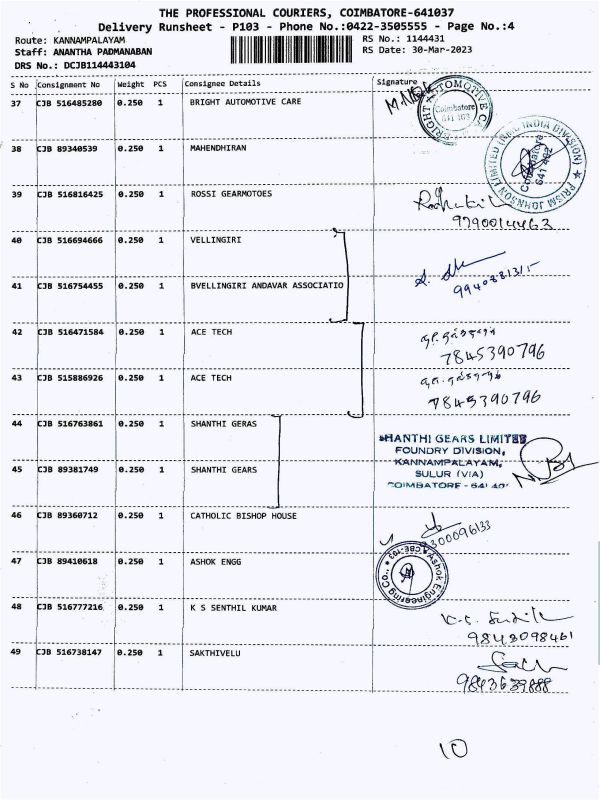 THE PROFESSIONAL COURIERS, COIMBATORE-641037
Delivery Runsheet - P103 - Phone No.:0422-3505555 - Page No.:4
Route: KANNAMPALAYAM
RS No.: 1144431
Staff: ANANTHA PADMANABAN
RS Date: 30-Mar-2023
DRS No.: DCJB114443104
S No Consignment No Weight PCS Consignee Details Signature
37 CJB 516485280 0.250 1 BRIGHT AUTOMOTIVE CARE
BRIGHT AUTOMOTIVE
Coimbatore
641 103
38 CJB 89340539 0.250 1 MAHENDHIRAN
PRISM JOHNSON LIMITED (RMC INDIA DIVISION)
Coimbatore
641 402
39 CJB 516816425 0.250 1 ROSSI GEARMOTOES
9790014463
40 CJB 516694666 0.250 1 VELLINGIRI
41 CJB 516754455 0.250 1 BVELLINGIRI ANDAVAR ASSOCIATIO
42 CJB 516471584 0.250 1 ACE TECH
7845390796
43 CJB 515886926 0.250 1 ACE TECH
7845390796
44 CJB 516763861 0.250 1 SHANTHI GERAS
SHANTHI GEARS LIMITED
FOUNDRY DIVISION,
KANNAMPALAYAM,
SULUR (VIA)
COIMBATORE - 641 40
45 CJB 89381749 0.250 1 SHANTHI GEARS
46 CJB 89360712 0.250 1 CATHOLIC BISHOP HOUSE
300096133
47 CJB 89410618 0.250 1 ASHOK ENGG
Ashok Engineering Co., CBE-103
48 CJB 516777216 0.250 1 K S SENTHIL KUMAR
9843098461
49 CJB 516738147 0.250 1 SAKTHIVELU
9843639888
10